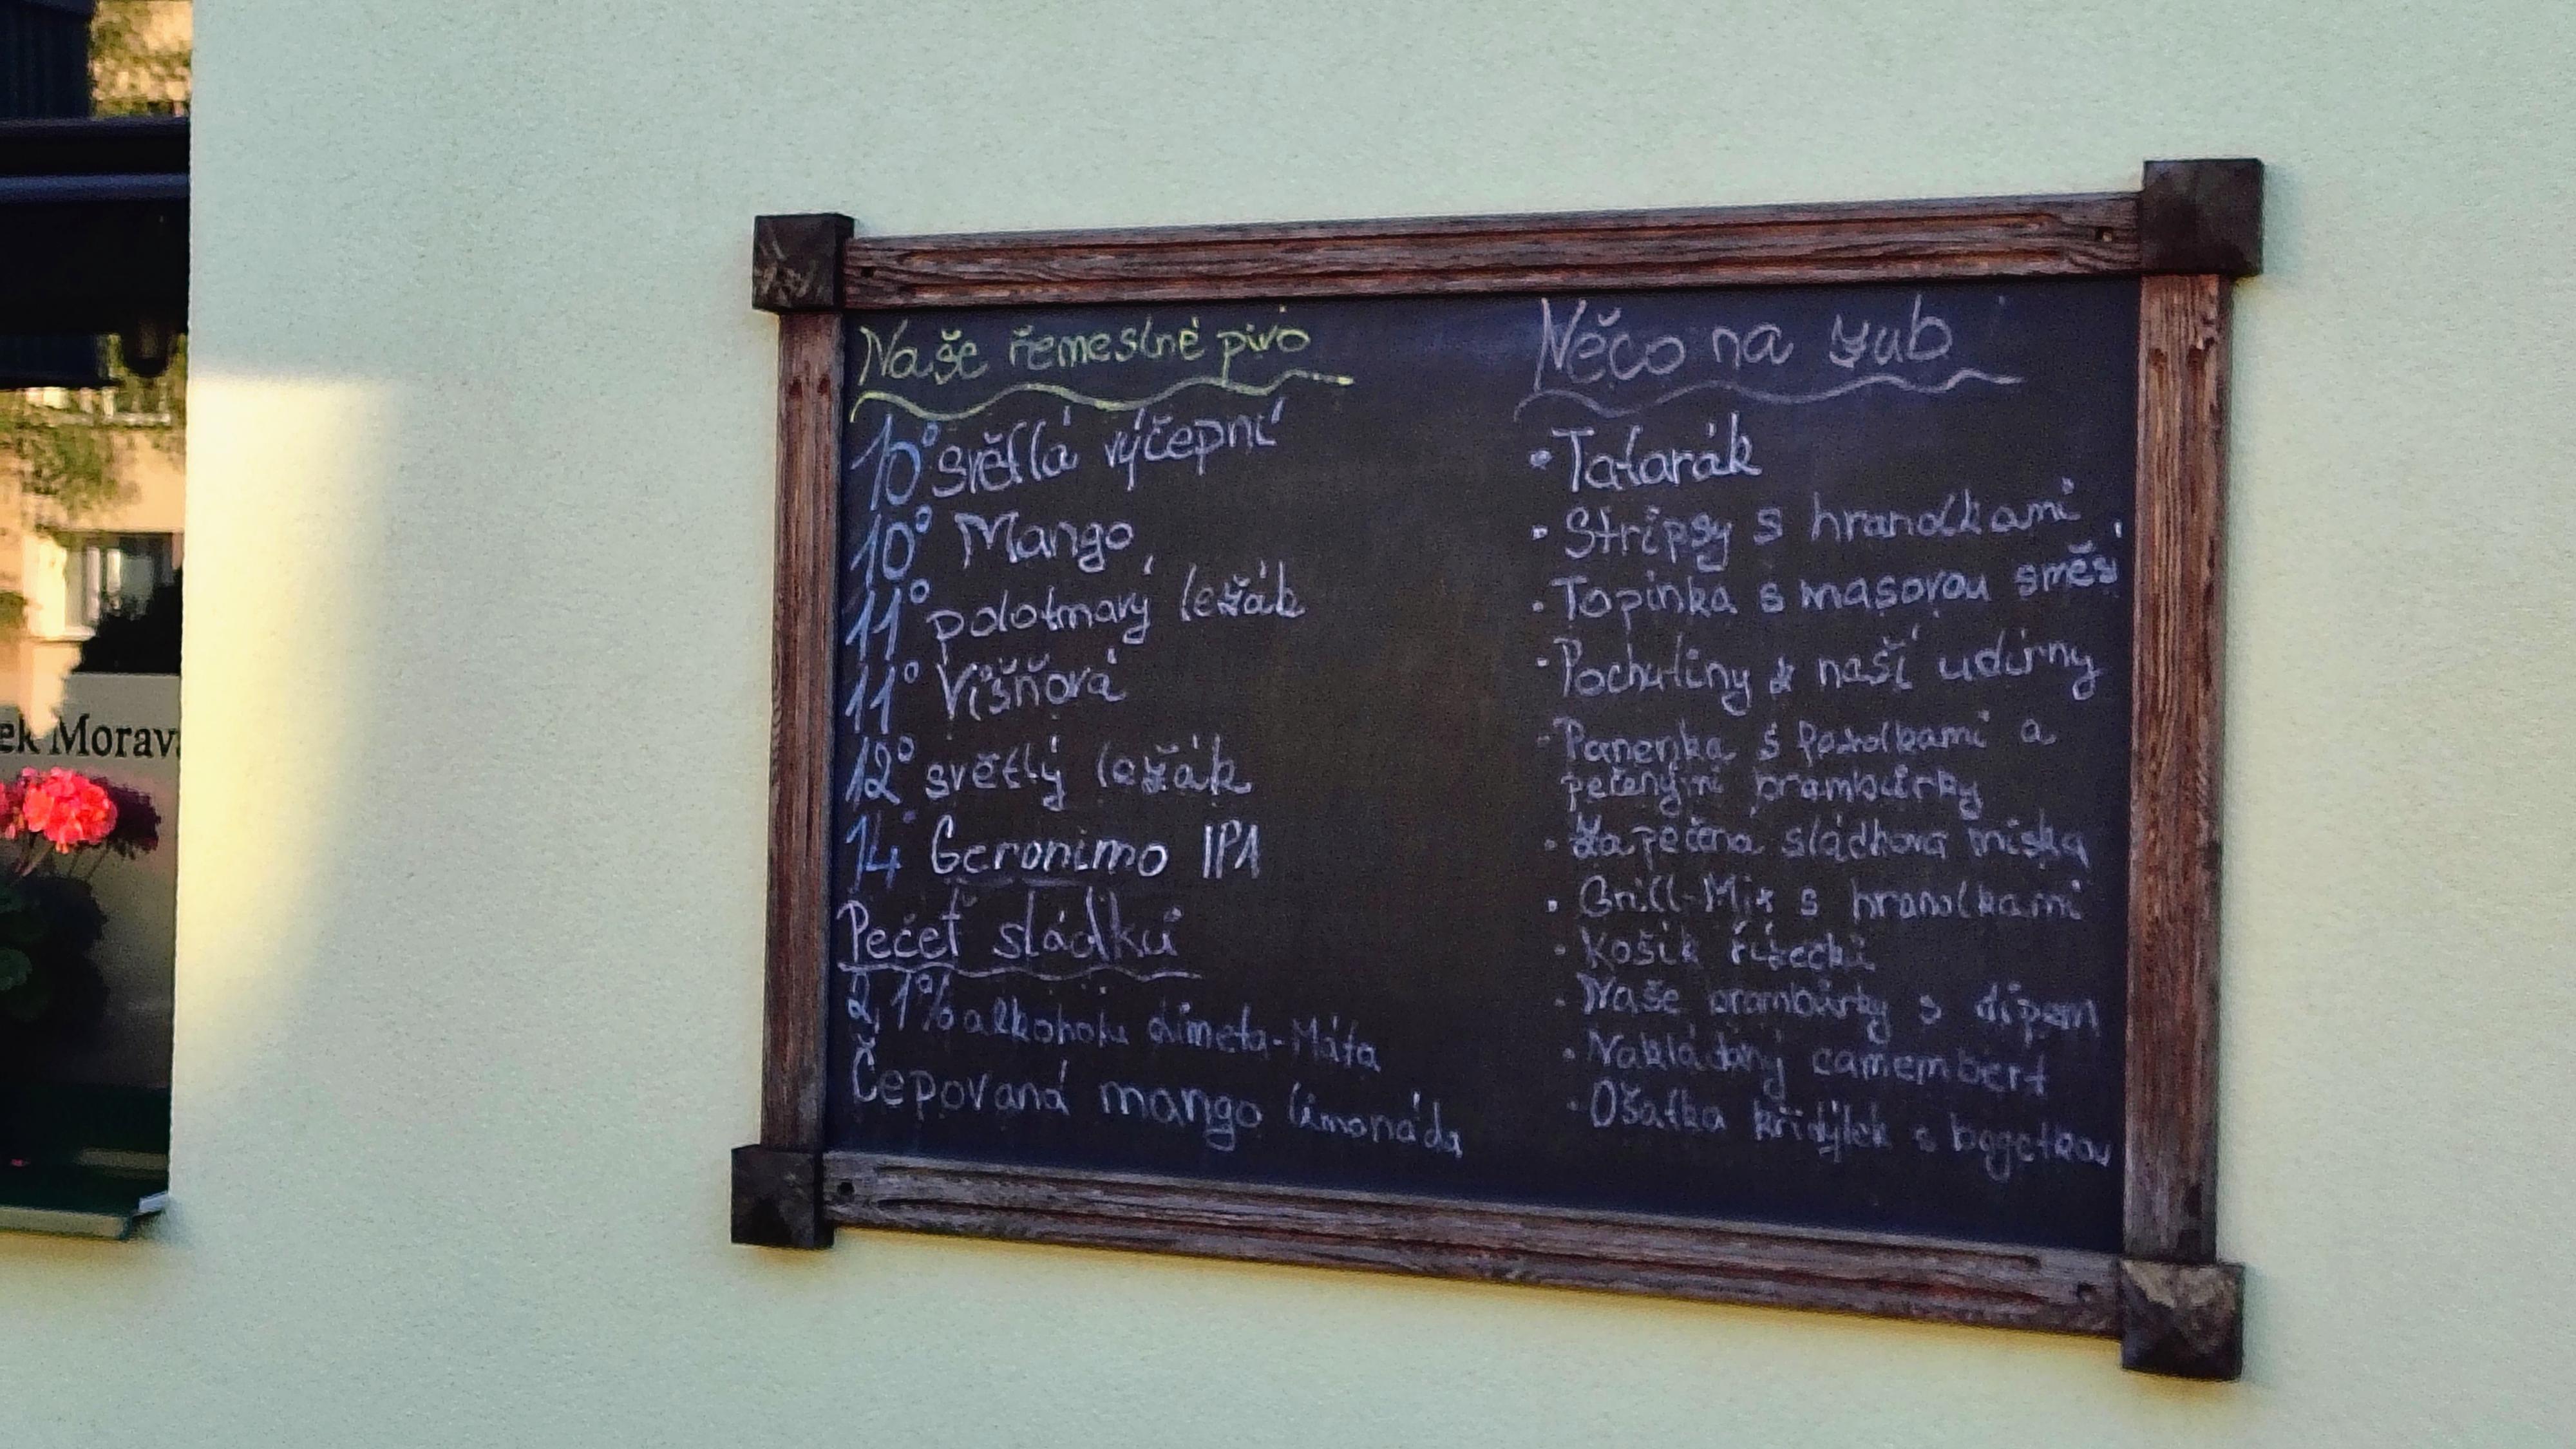 ek Morav
Naše řemeslné pivo
10° světlá výčepní
10° Mango
11° polotmavý ležák
11° Višňová
12° světlý ležák
14° Geronimo IPA
Pečeť sládků
2,1% alkoholu Limeta-Máta
Čepovaná mango limonáda
Něco na zub
• Tatarák
• Stripsy s hranolkami
• Topinka s masovou směsí
• Pochutiny z naší udírny
- Panenka s fazolkami a
pečenými brambůrky
• Zapečená sládkova miska
• Grill-Mix s hranolkami
• Košík řízečků
• Naše brambůrky s dipem
• Nakládaný camembert
• Ošatka křidýlek s bagetkou